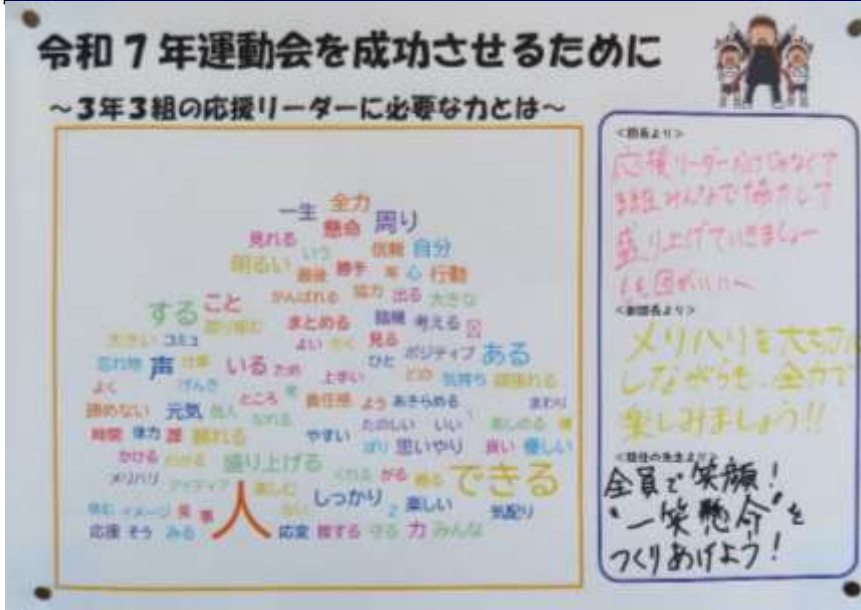 令和7年運動会を成功させるために
～3年3組の応援リーダーに必要な力とは～
一生 全力
懸命 周り
見れる いう 信頼 自分
明るい 最後 勝手 心 行動
がんばれる 協力 出る 大きな
する こと まとめる 積極 考える
大きい コミュ よい 見る
忘れ物 声 仕事 いる ため ひと ポジティブ ある
よく げんき 上手い どの 気持ち 頑張れる
諦めない 元気 個人 ところ 責任感 よう あきらめる まわり
なれる たのしい いい 楽しめる
時間 体力 誰 頼れる やすい ばり 思いやり 良い 優しい
かける わかる 盛り上げる くれる がる できる
メリハリ アイディア 楽しむ しっかり 楽しい 気配り
イメージ 人 ない
応援 そう みる 応変 接する 守る 力 みんな
<団長より>
応援リーダーだけじゃなくて
3組みんなで協力して
盛り上げていきましょー
<副団長より>
メリハリを大切に
しながらも、全力で
楽しみましょう!!
<担任の先生より>
全員で笑顔!
“一笑懸命”を
つくりあげよう!